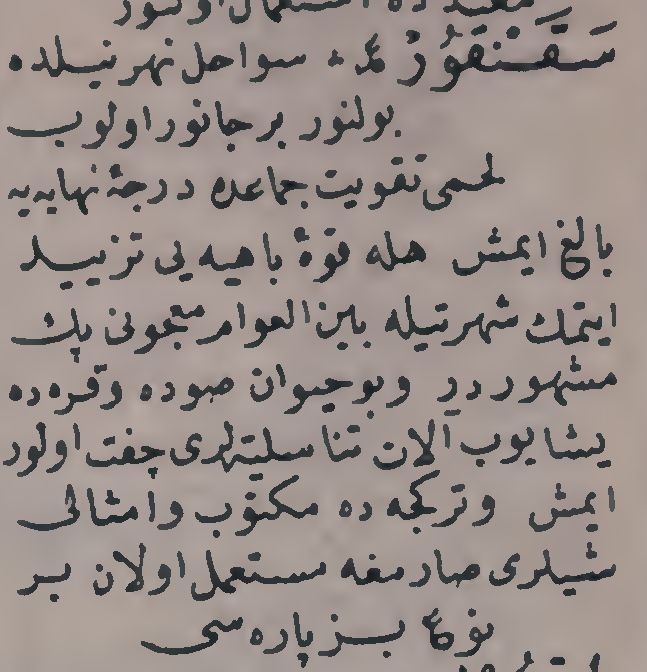 سَقَنْقُوْرْ ع ، سواحل نهر نیلده
بولنور بر جانور اولوب
لحمی تقویت جماعده درجهٔ نهایه‌یه
بالغ ایمش هله قوهٔ باهیه یی تزیید
ایتمك شهرتیله بین العوام معجونی پك
مشهور در وبو حیوان صوده وقره ده
یشایوب آلات تناسلیه‌لری چفت اولور
ایمش وترکجه ده مکتوب وامثالی
شیلری صارمغه مستعمل اولان بر
نوع بز پاره سی